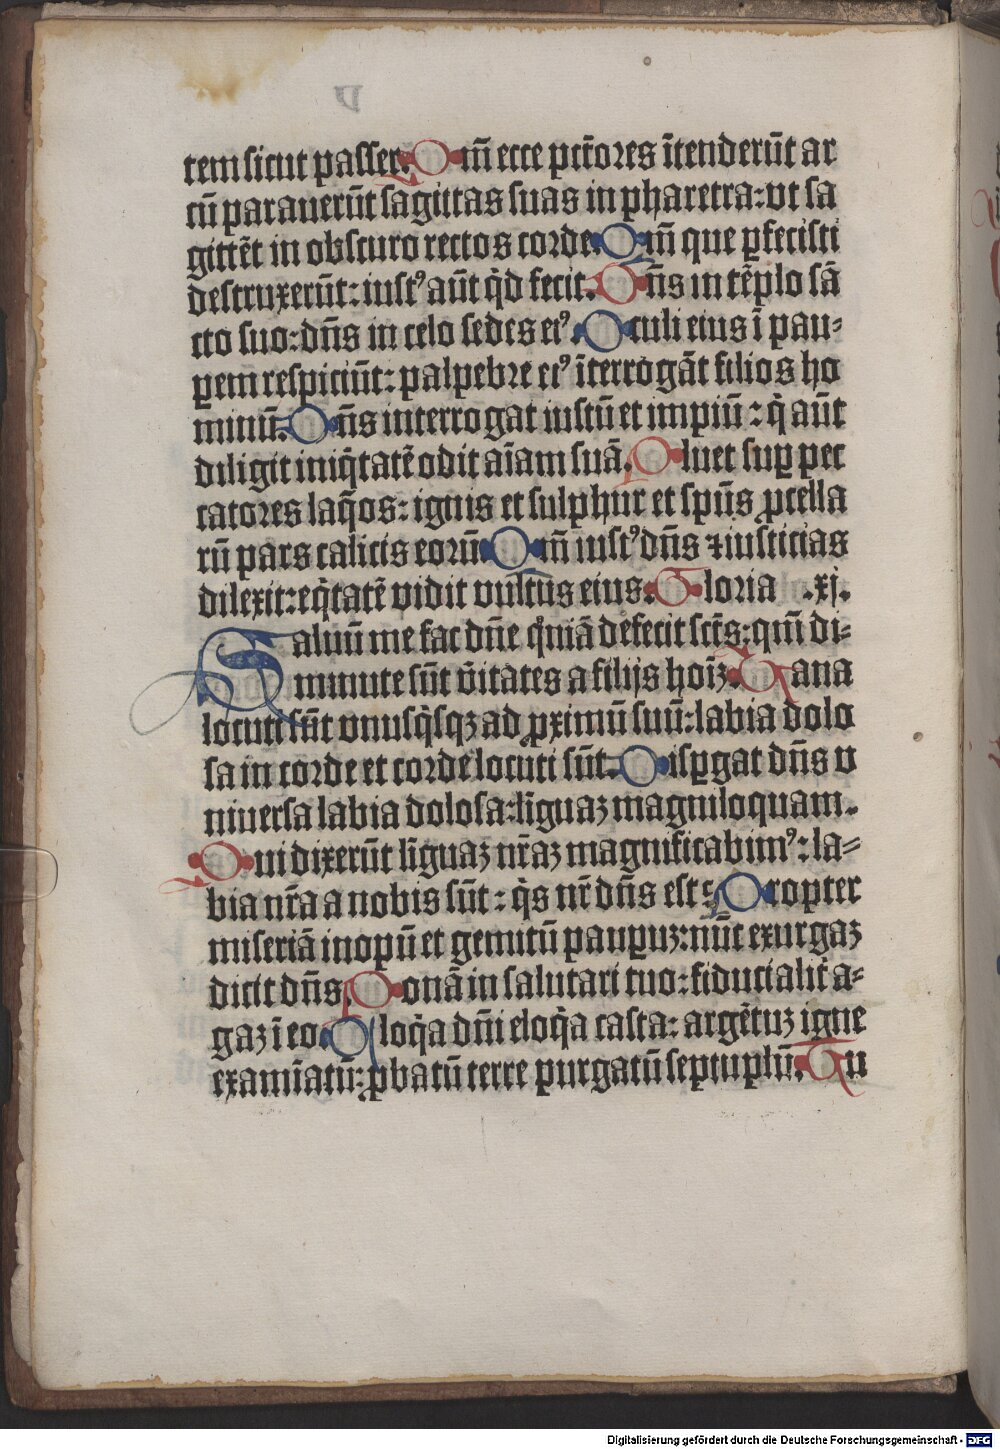 tem sicut passer. Qm̄ ecce pctōres ītenderūt ar
cū parauerūt sagittas suas in pharetra: vt sa
gittēt in obscuro rectos corde. Qm̄ que ꝑfecisti
destruxerūt: iustꝰ aūt q̇d fecit. Dn̄s in tēplo sā
cto suo: dn̄s in celo sedes eiꝰ. Oculi eius ī pau⸗
perem respiciūt: palpebre eiꝰ īterrogāt filios ho
minū. Dn̄s interrogat iustū et impiū: q̇ aūt
diligit iniq̇tatē odit aīam suā. Pluet suꝑ pec
catores laq̄os: ignis et sulphur et spūs ꝓcella
rū pars calicis eorū. Qm̄ iustꝰ dn̄s ⁊ iusticias
dilexit: eq̇tatē vidit vultus eius. Gloria .xj.
Saluū me fac dn̄e qm̊niā defecit sct̄s: qm̄ di⸗
minute sūt v̄itates a filijs hoīꝫ. Uana
locuti sūt vnusq̇sqꝫ ad ꝓximū suū: labia dolo
sa in corde et corde locuti sūt. Disꝑgat dn̄s v
niuersa labia dolosa: līguaꝫ magniloquam.
Qui dixerūt līguaꝫ nr̄aꝫ magnificabimꝰ: la⸗
bia nr̄a a nobis sūt: q̇s nr̄ dn̄s est? Propter
miseriā inopū et gemitū pauꝑuꝫ: nūc exurgaꝫ
dicit dn̄s. Ponā in salutari tuo: fiducialit̄ a⸗
gaꝫ ī eo. Eloq̇a dn̄i eloq̇a casta: argētuꝫ igne
examīatū: ꝓbatū terre purgatū septuplū. Tu
Digitalisierung gefördert durch die Deutsche Forschungsgemeinschaft - DFG